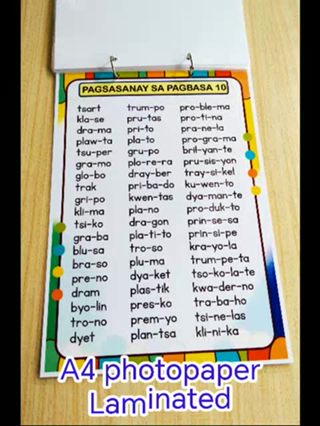 PAGSASANAY SA PAGBASA 10
tsart trum-po pro-ble-ma
kla-se pru-tas pro-ti-na
dra-ma pri-to pra-ne-la
plaw-ta pla-to pro-gra-ma
tsu-per gru-po bril-yan-te
gra-mo plo-re-ra pru-sis-yon
glo-bo dray-ber tray-si-kel
trak pri-ba-do ku-wen-to
gri-po kwen-tas dya-man-te
kli-ma pla-no pro-duk-to
tsi-ko dra-gon prin-se-sa
gra-ba pla-ti-to prin-si-pe
blu-sa tro-so kra-yo-la
bra-so plu-ma trum-pe-ta
pre-no dya-ket tso-ko-la-te
dram plas-tik kwa-der-no
byo-lin pres-ko tra-ba-ho
tro-no prem-yo tsi-ne-las
dyet plan-tsa kli-ni-ka
A4 photopaper
Laminated